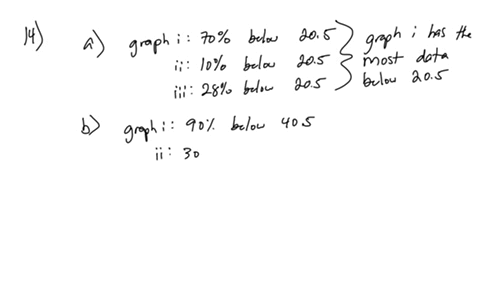 14) a) graph i: 70% below 20.5 } graph i has the
ii: 10% below 20.5 } most data
iii: 28% below 20.5 } below 20.5
b) graph i: 90% below 40.5
ii: 30